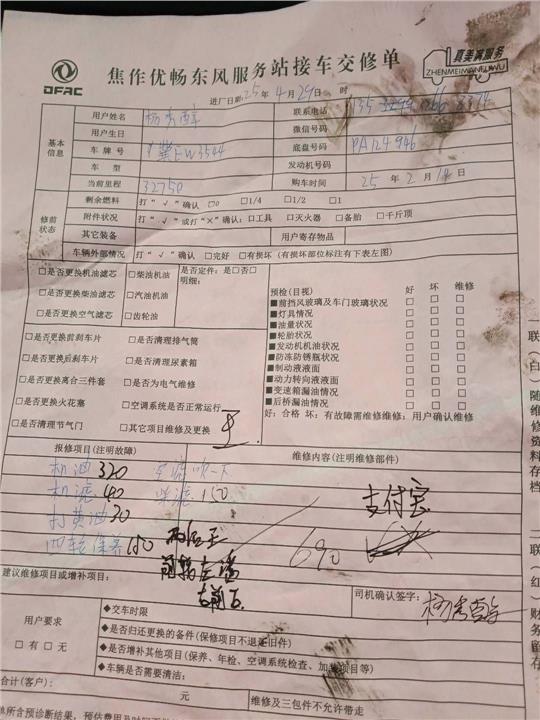 DFAC
焦作优畅东风服务站接车交修单
真美满服务
ZHENMEIMANFUWU
进厂日期:25年4月29日 时
基本信息
用户姓名
联系电话
用户生日
微信号码
车牌号 冀EW3544
底盘号码 PA124946
车型
发动机号码
当前里程 32750
购车时间 25年2月14日
修前状态
剩余燃料 打"√"确认 □0 □1/4 □1/2 □1
附件状况 打"√"或打"×"确认:□工具 □灭火器 □备胎 □千斤顶
其它装备
用户寄存物品
车辆外部情况 打"√"确认 □完好 □有损坏(有损坏部位标注有下表左图)
□是否更换机油滤芯 □柴油机油
□是否更换柴油滤芯 □汽油机油
□是否更换空气滤芯 □齿轮油
是否定件:是□否□
明细:
□是否更换前刹车片 □是否清理排气筒
□是否更换后刹车片 □是否清理尿素箱
□是否更换离合三件套 □是否为电气维修
□是否更换火花塞 □空调系统是否正常运行
□是否清理节气门 □其它项目维修及更换
预检(目视) 好 坏 维修
■前挡风玻璃及车门玻璃状况 □ □ □
■灯具情况 □ □ □
■油量状况 □ □ □
■轮胎状况 □ □ □
■发动机机油状况 □ □ □
■防冻防锈瓶状况 □ □ □
■制动液液面 □ □ □
■动力转向液液面 □ □ □
■变速箱漏油情况 □ □ □
■后桥漏油情况 □ □ □
好:合格 坏:有故障需维修维修:用户确认维修
报修项目(注明故障)
维修内容(注明维修部件)
机油 320 空滤吹一下
机滤 40 柴滤 150
打黄油 30
四轮保养 150
690
支付宝
建议维修项目或增补项目:
司机确认签字:
用户要求
□有 □无
◆交车时限
◆是否归还更换的备件(保修项目不退还旧件)
◆是否增补其他项目(保养、年检、空调系统检查、加装项目等)
◆车辆是否需要清洁:
合计(客户): 元
维修及三包件不允许带走
所含预诊断结果,预估费用及时间
一联
(白
随维修资料存档
二联
(红
财务